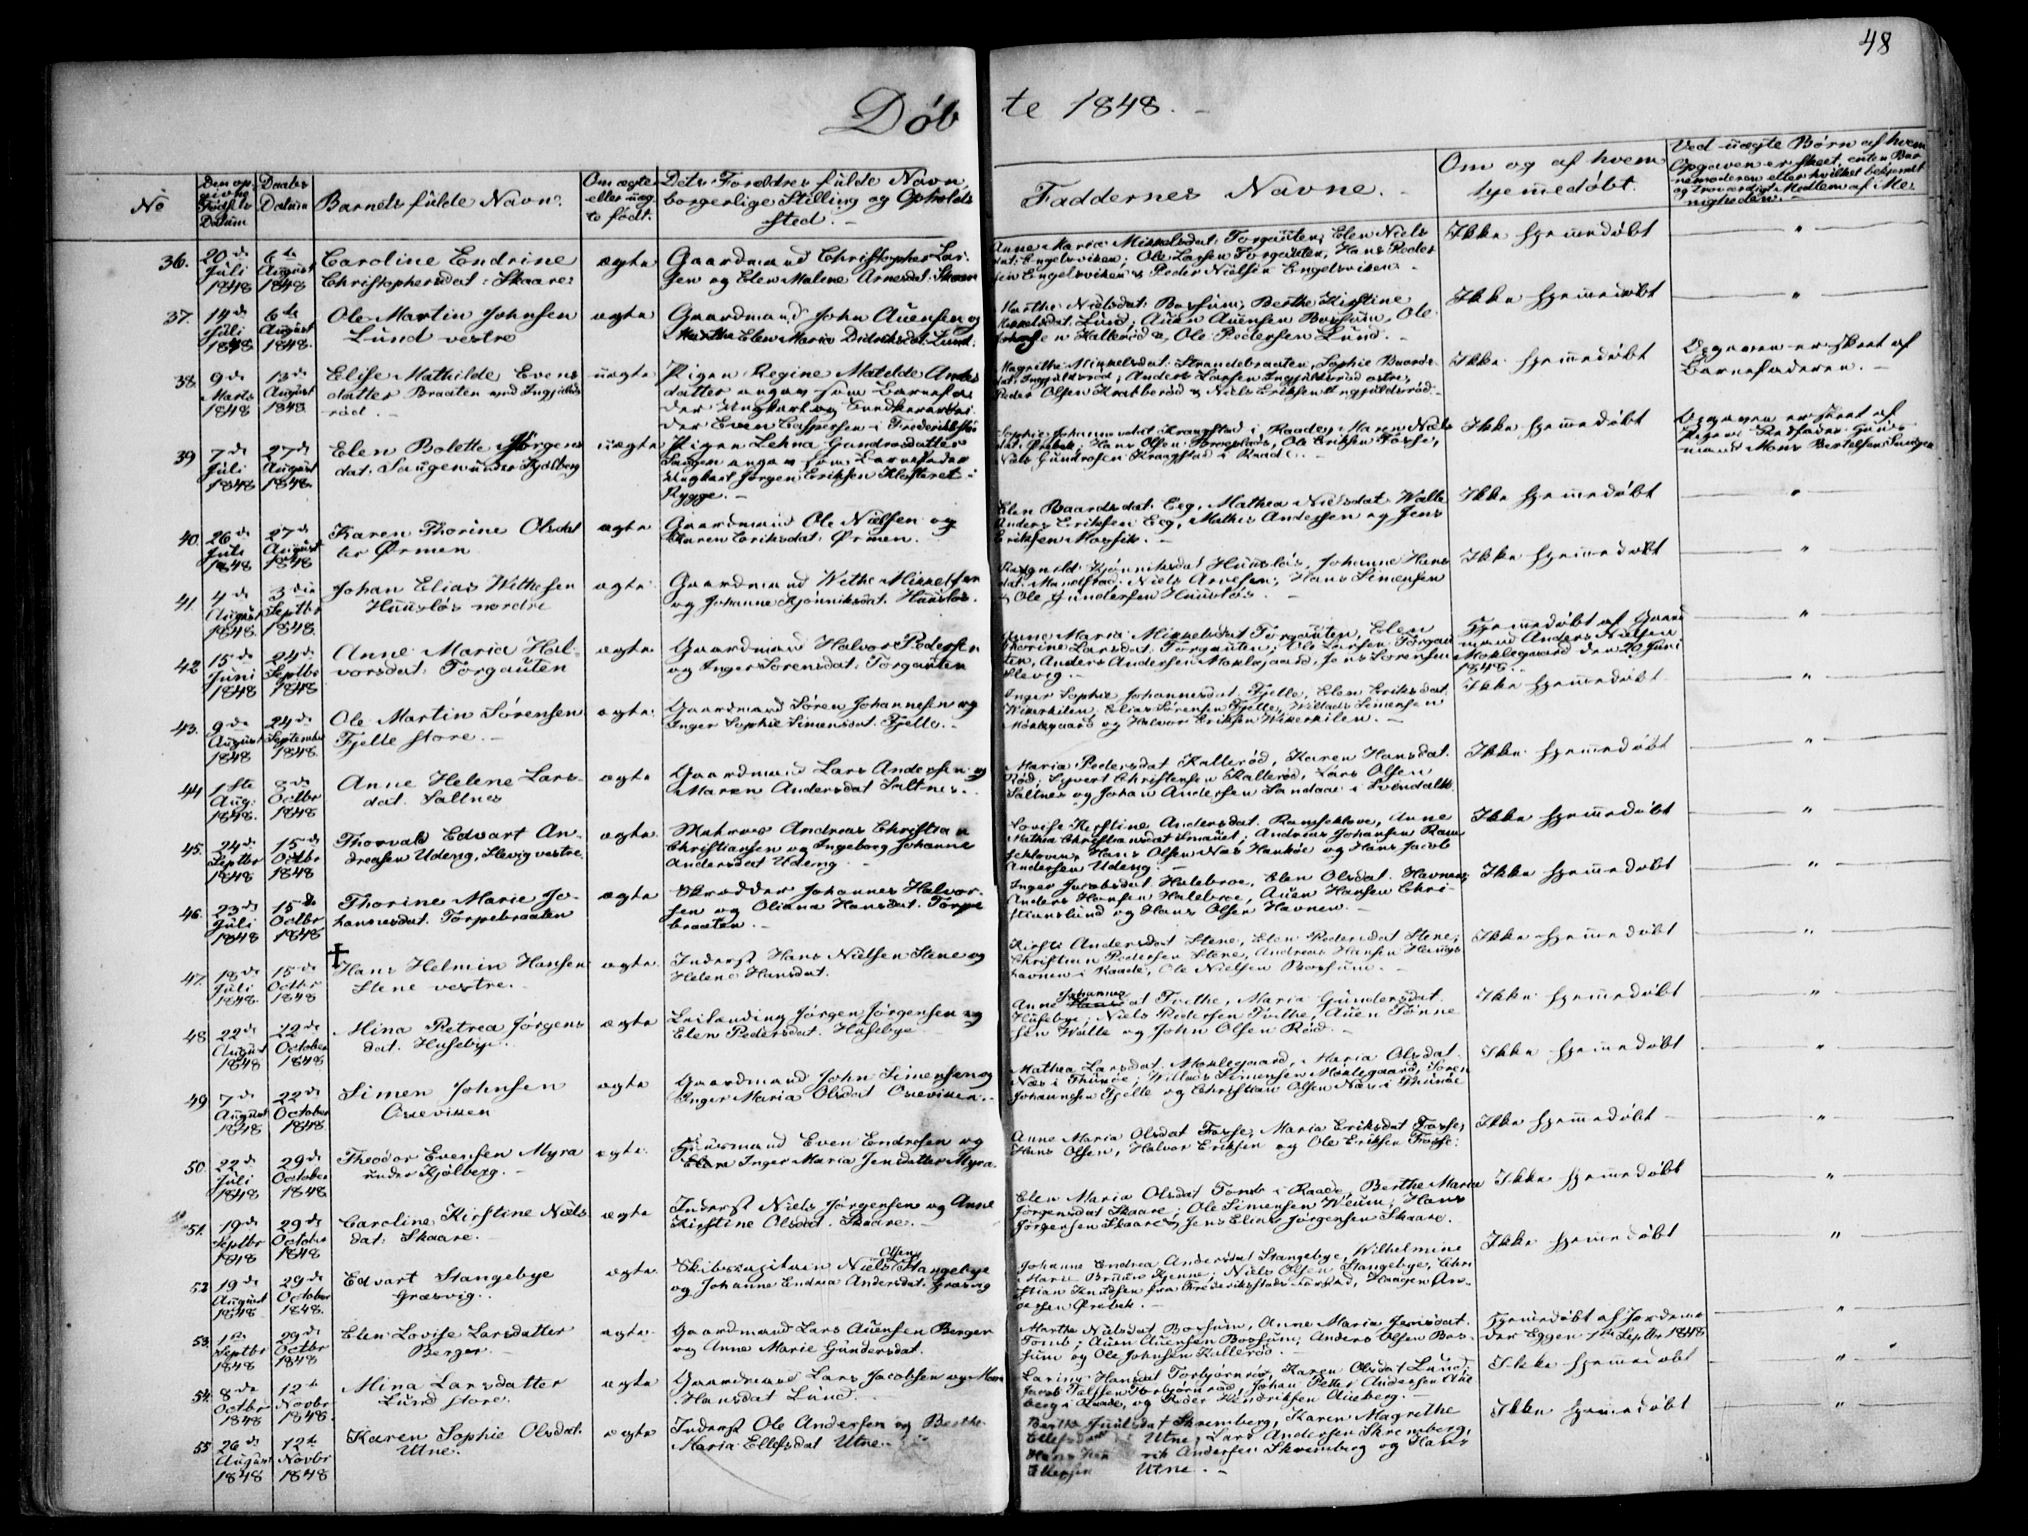 48
Døb te 1848. -
No
Den op-
givne
Fødsels
Datum
Daabs
Datum
Barnets fulde Navn.
Om ægte
eller uæg-
te født.
Dets Forældres fulde Navn
borgerlige Stilling og Opholds
sted. -
Faddernes Navne. -
Om og af hvem
hjemmedøbt.
Ved uægte Børn af hvem
Opgaven er skeet, enten Bar-
nemoderen eller hvilket bekjendt
og troværdigt Medlem af Me-
nigheden. -
36.
20de
Juli
1848
6te
August
1848
Caroline Endrine
Christophersdat: Skaare:
ægte
Gaardmand Christopher Lar-
sen og Elen Malene Arnesdat: Skaare
Anne Maria Mikkelsdat: Torgauten, Elen Niels
dat: Engelsviken; Ole Larsen Torgauten, Hans Peder
sen Engelsviken & Peder Nielsen Engelsviken. -
Ikke hjemmedøbt
"
37.
14de
Juli
1848
6te
August
1848.
Ole Martin Johnsen
Lund vestre
ægte
Gaardmand John Auensen og
Elen Maria Didriksdat: Lund.
Marthe Nielsdat: Bossum, Berthe Kirstine
Mikkelsdat: Lund; Auen Auensen Bossum, Ole
Johnsen Kallerød & Ole Pedersen Lund. -
Ikke hjemmedøbt
"
38
9de
Marts
1848
13de
August
1848
Elise Mathilde Evens
datter Braaten und Ingjalds
rød. -
uægte
Pigen Regine Matelde Anders
datter angav som Barnefa
der Ungkarl og Snedkersven
der Even Caspersen i Frederikstad
Magrethe Mikkelsdat: Strandebraaten, Sophie Baards
dat: Ingjaldsrød; Anders Larsen Ingjaldsrød østre,
Peder Olsen Krabberød & Niels Eriksen Ingjaldsrød. -
Ikke hjemmedøbt
Opgaven er skeet af
Barnefaderen. -
39
7de
Juli
1848
27de
August
1848.
Elen Bolette Jørgens
dat: Saugen under Kjølberg
uægte
Pigen Lehna Gundrosdatter
Saugen angav som Barnefader
Ungkarl Jørgen Eriksen Klosteret i
Rygge. -
Sophie Johannesdat: Kragstad i Raade, Maren Niels
dat: Ørebek; Hans Olsen, Ole Eriksen Fosse,
Niels Gundrosen Kragstad i Raade. -
Ikke hjemmedøbt
Opgaven er skeet af
Pigens Huus-
mand Mons Bertelsen Saugen
40
26de
Juli
1848
27de
August
1848
Karen Thorine Olsdat
ter Ørmen
ægte
Gaardmand Ole Nielsen og
Karen Eriksdat: Ørmen.
Elen Baardsdat: Eeg, Mathea Nielsdat: Walle
Anders Eriksen Eeg, Mathis Andersen og Jens
Eriksen Mosfik. -
Ikke hjemmedøbt
"
41.
4de
August
1848.
3die
Septbr
1848.
Johan Elias Wethesen
Huusløs nordre
ægte
Gaardmand Wethe Mikkelsen
og Johanne Kjønniksdat: Huusløs.
Ragnild Kjønniksdat Huusløs, Johanne Hans
dat: Mandstad; Niels Arnesen, Hans Simensen
& Ole Gundersen Huusløs. -
Ikke hjemmedøbt
"
42
15de
Juni
1848
24de
Septbr
1848
Anne Maria Hal-
vorsdat: Torgauten
ægte
Gaardmand Halvor Pedersen
og Inger Sørensdat: Torgauten
Anne Maria Mikkelsdat Torgauten, Elen
Thorine Larsdat: Torgauten; Ole Larsen Torgau
ten, Anders Andersen Moklegaard, Jens Sørensen
Slevig. -
Hjemmedøbt af Gaard
mand Anders Nielsen
Moklegaard den 29 Juni
1848.
"
43.
9de
August
1848
24de
September
1848.
Ole Martin Sørensen
Fjelle store. -
ægte.
Gaardmand Søren Johannesen og
Inger Sophie Simensdat: Fjelle. -
Inger Sophie Johannesdat: Fjelle, Elen Eriksdat:
Wikerkilen; Elias Sørensen Fjelle, Willads Simensen
Moklegaard og Halvor Eriksen Wikerkilen. -
Ikke hjemmedøbt
"
44
1ste
Aug:
1848.
8de
Octbr
1848.
Anne Helene Lars-
dat: Saltnes
ægte
Gaardmand Lars Andersen og
Maren Andersdat Saltnes. -
Maria Pedersdat Kallerød, Karen Hansdat.
Rød; Syvert Christensen Kallerød, Lars Olsen
Saltnes og Johan Andersen Sandaae i Svindalen
Ikke hjemmedøbt
"
45.
24de
Septbr
1848
15de
Octbr
1848
Thorvald Edvart An-
dreasen Udeng, Slevig vestre.
ægte.
Matros Andreas Christian
Christiansen og Ingeborg Johanne
Andersdat Udeng. -
Lovise Kirstine Andersdat. Ramseklove, Anne
Mathea Christiansdat Smauet; Andreas Johansen Ram
sekloven, Hans Olsen Næs Hankøe og Hans Jacob
Andersen Udeng.
Ikke hjemmedøbt
"
46.
23de
Juli
1848
15de
Octbr
1848
Thorine Marie Jo-
hannesdat. Torpebraaten
ægte
Skrædder Johannes Halvor-
sen og Oliana Hansdat. Torpe
braaten. -
Inger Jacobsdat. Halebroe, Elen Olsdat. Havnen;
Anders Hansen Halebroe, Auen Hansen Chri-
stianslund og Hans Olsen Havnen. -
Ikke hjemmedøbt
"
47.
18de
Juli
1848.
15de
Octbr
1848
✝
Hans Helmin Hansen
Stene vestre. -
ægte
Inderst Hans Nielsen Stene og
Helene Hansdat.
Kirsti Andersdat Stene, Elen Pedersdat Stene;
Christian Pedersen Stene, Andreas Hansen Haugs
havnen i Raade, Ole Nielsen Bossum. -
Ikke hjemmedøbt
"
48
22de
August
1848
22de
October
1848
Mina Petrea Jørgens
dat. Husebye.
ægte
Leilending Jørgen Jørgensen og
Elen Pedersdat. Husebye
Anne Johannesdat Tvethe, Maria Gundersdat.
Husebye; Niels Pedersen Tvethe, Auen Tønne
sen Walle og John Olsen Rød. -
Ikke hjemmedøbt
"
49
7de
August
1848
22de
October
1848
Simen Johnsen
Oseviken
ægte
Gaardmand John Simensen og
Inger Maria Olsdat Oseviken. -
Mathea Larsdat. Moklegaard, Maria Olsdat.
Næs i Thunøe; Willads Simensen Moklegaard, Søren
Johannesen Fjelle og Christian Olsen Næs i Thunøe
Ikke hjemmedøbt
"
50
22de
Juli
1848
29de
October
1848.
Theodor Evensen Myra
under Kjølberg. -
ægte.
Huusmand Even Endresen og
Inger Maria Jensdatter Myra.
Anne Maria Olsdat Fosse, Maria Eriksdat Fosse;
Hans Olsen, Halvor Eriksen og Ole Eriksen Fosse.
Ikke hjemmedøbt
"
51.
19de
Septbr
1848
29de
October
1848
Caroline Kirstine Niels
dat: Skaare. -
ægte
Inderst Niels Jørgensen og Anne
Kirstine Olsdat. Skaare. -
Elen Maria Olsdat Tomb i Raade, Berthe Maria
Jørgensdat Skaare; Ole Simensen Weum, Hans
Jørgensen Skaare & Jens Elias Jørgensen Skaare.
Ikke hjemmedøbt
"
52
19de
August
1848
29de
October
1848.
Edvart Stangebye
Græsvig. -
ægte
Skibscapitain Niels Olsen Stangebye
og Johanne Endrea Andersdat. Græsvig
Johanne Endrea Andersdat Stangebye, Wilhelmine
Marie Bruun Kjenne; Niels Olsen Stangebye, Chri
stian Knudsen fra Frederiksstads Forstad, Haagen An-
dersen Ørebek. -
Ikke hjemmedøbt
"
53.
1ste
Septbr
1848
29de
Octbr
1848
Elen Lovise Larsdatter
Berger. -
ægte.
Gaardmand Lars Auensen Berger
og Anne Marie Gundersdat.
Marthe Nielsdat Bossum, Anne Maria Jensdat.
Tomb; Auen Auensen Bossum, Anders Olsen Bos-
sum og Ole Johnsen Kallerød. -
Hjemmedøbt af Jordemo
der Eggen 1ste Septbr 1848
"
54.
8de
Octbr
1848
12te
Novbr
1848.
Mina Larsdatter
Lund store.
ægte
Gaardmand Lars Jacobsen og Maren
Hansdat Lund. -
Larine Hansdat Torbjørnrød, Karen Olsdat Lund;
Jacob Tolfsen Torbjørnrød, Johan Petter Andersen Aue
berg i Raade, og Peder Hendriksen Aueberg. -
Ikke hjemmedøbt
"
55
26de
August
1848
12te
Novbr
1848
Karen Sophie Olsdat.
Utne.
ægte
Inderst Ole Andersen og Berthe
Maria Ellefsdat Utne. -
Berthe Juulsdat Skremberg, Karen Magrethe
Ellefsdat Utne; Lars Andersen Skremberg,
Hans Henrik Andersen Skremberg og Hans
Ellefsen Utne. -
Ikke hjemmedøbt
"